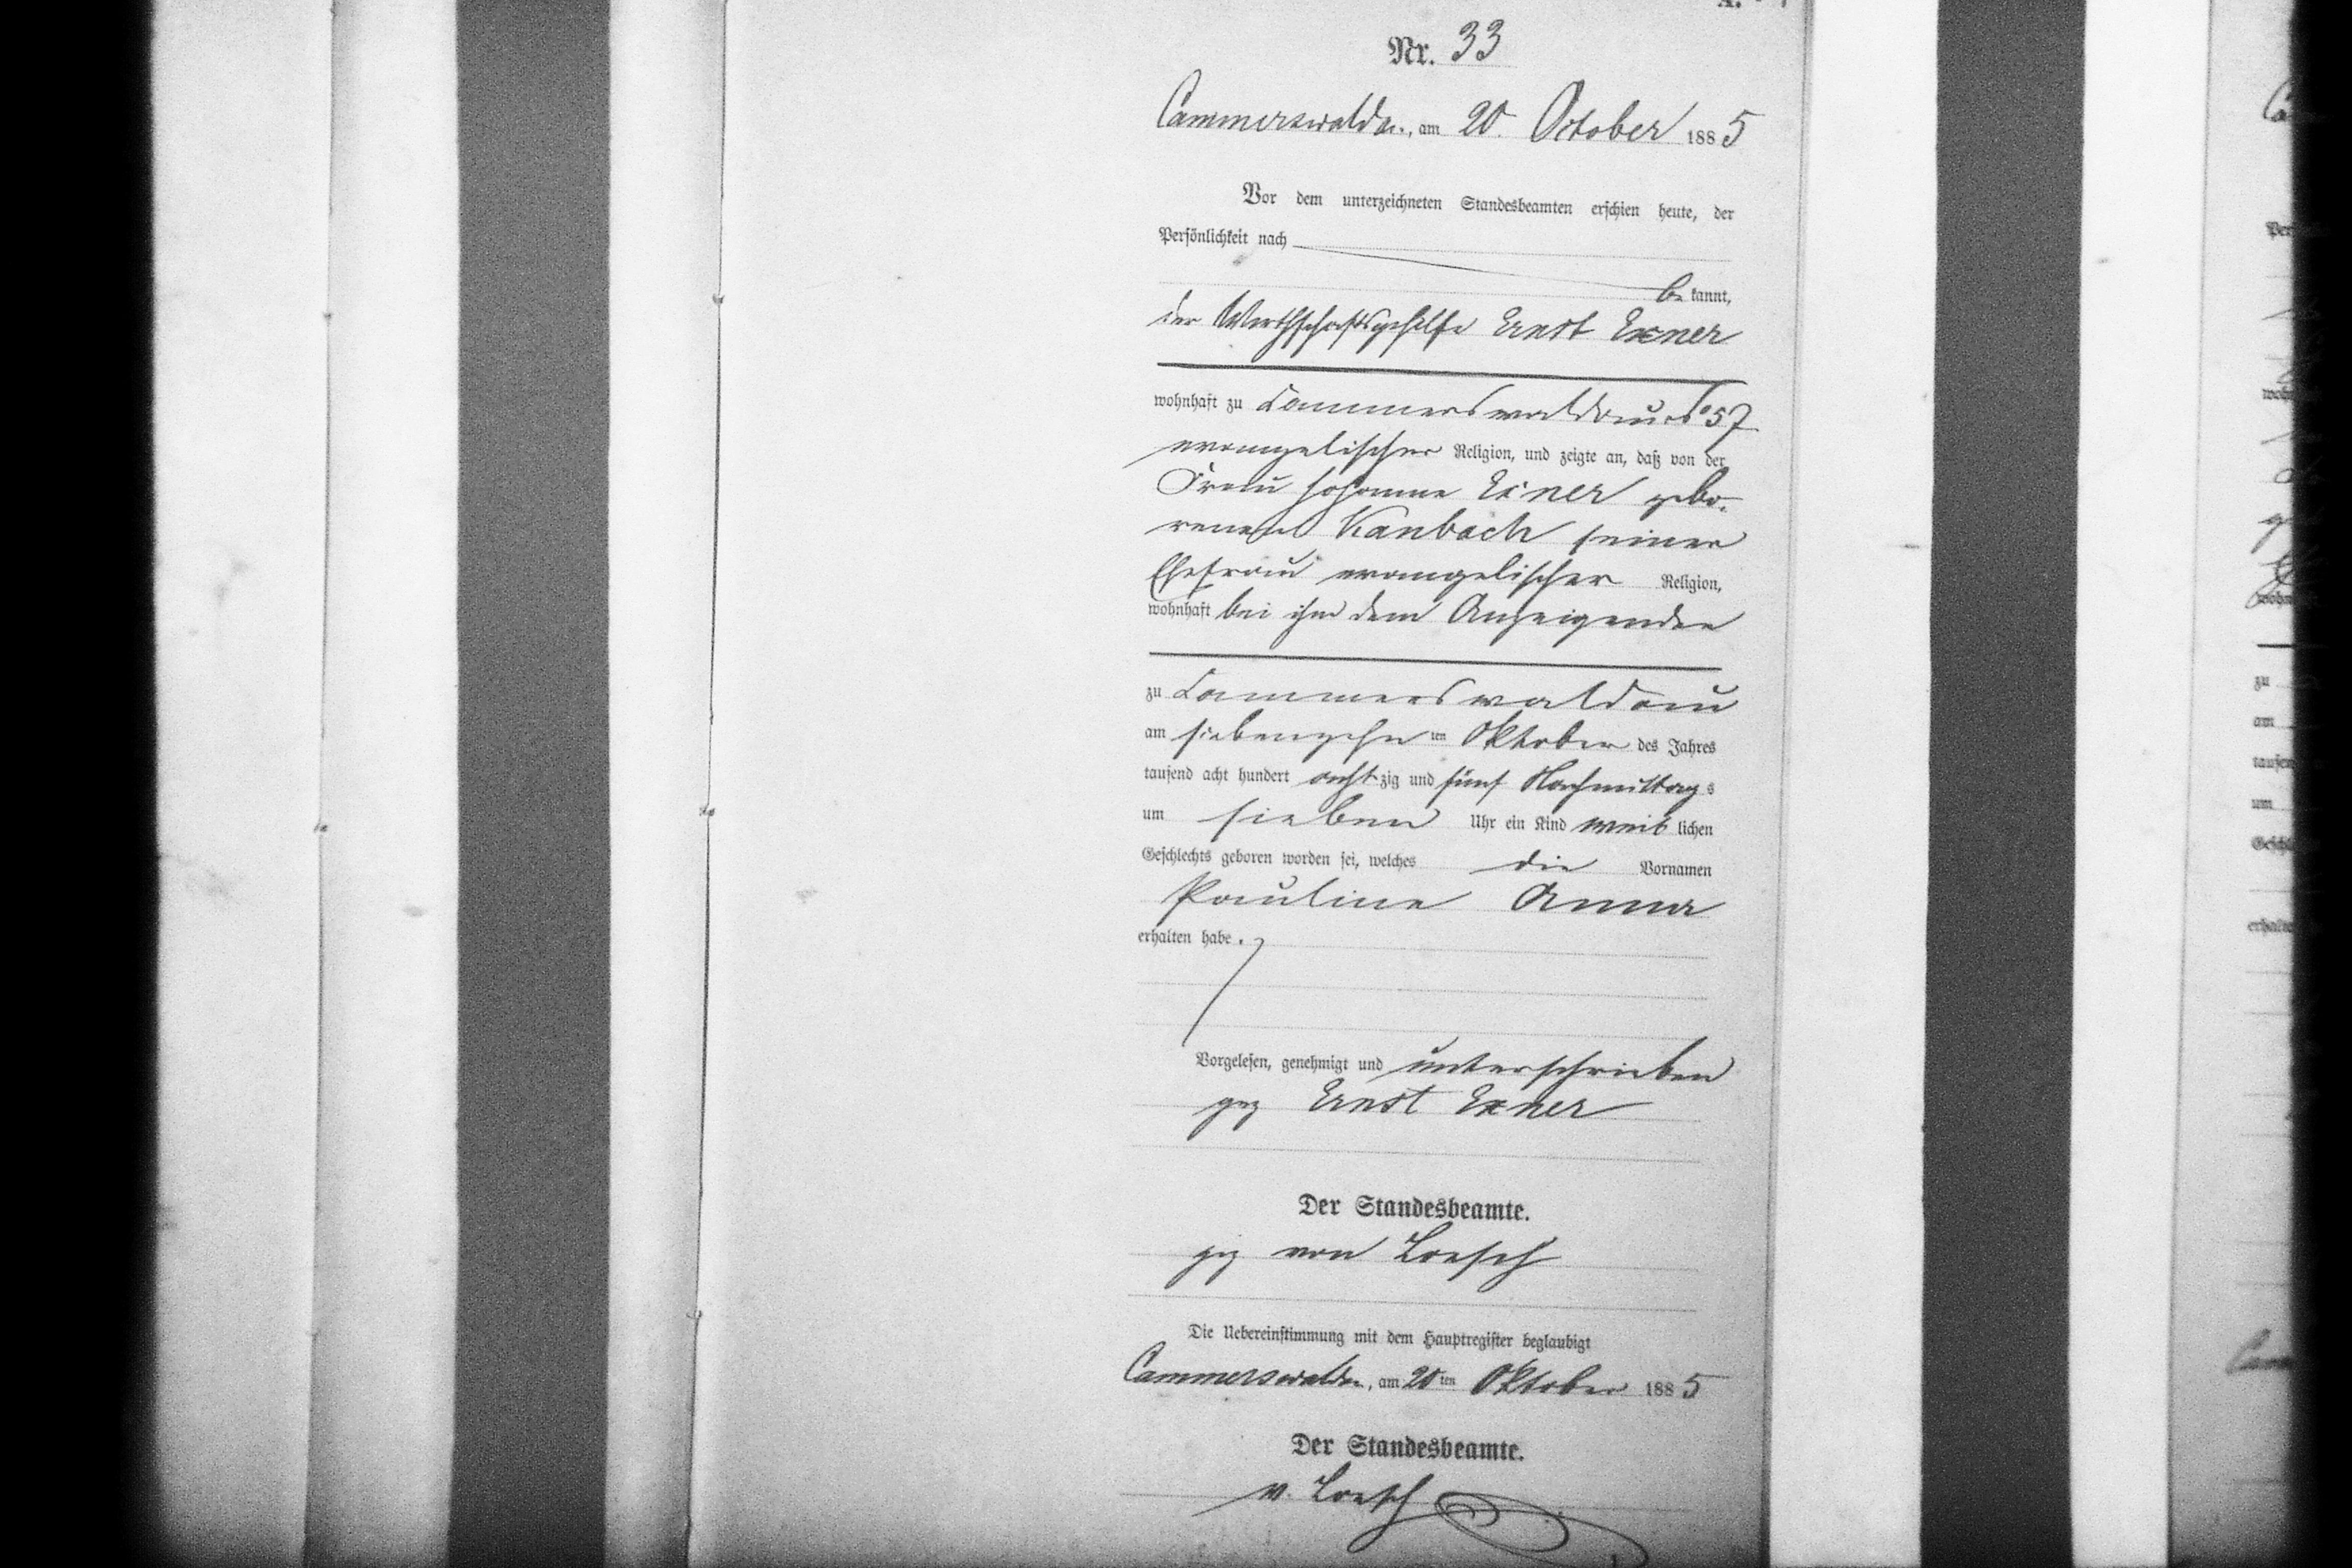 Nr. 33
Cammerswaldau, am 20. October 1885
Vor dem unterzeichneten Standesbeamten erschien heute, der
Persönlichkeit nach
be kannt,
der Wirthschaftsgehilfe Ernst Exner
wohnhaft zu Cammerswaldau No 57
evangelischer Religion, und zeigte an, daß von der
Frau Johanne Exner gebo-
renen Kanbach seiner
Ehefrau evangelischer Religion,
wohnhaft bei ihm dem Anzeigenden
zu Cammerswaldau
am siebenzehn ten Oktober des Jahres
tausend acht hundert acht zig und fünf Nachmittag s
um sieben Uhr ein Kind weib lichen
Geschlechts geboren worden sei, welches die Vornamen
Pauline Anna
erhalten habe.
Vorgelesen, genehmigt und unterschrieben
gez Ernst Exner
Der Standesbeamte.
gez von Loesch
Die Uebereinstimmung mit dem Hauptregister beglaubigt
Cammerswaldau, am 20 ten Oktober 1885
Der Standesbeamte.
v. Loesch